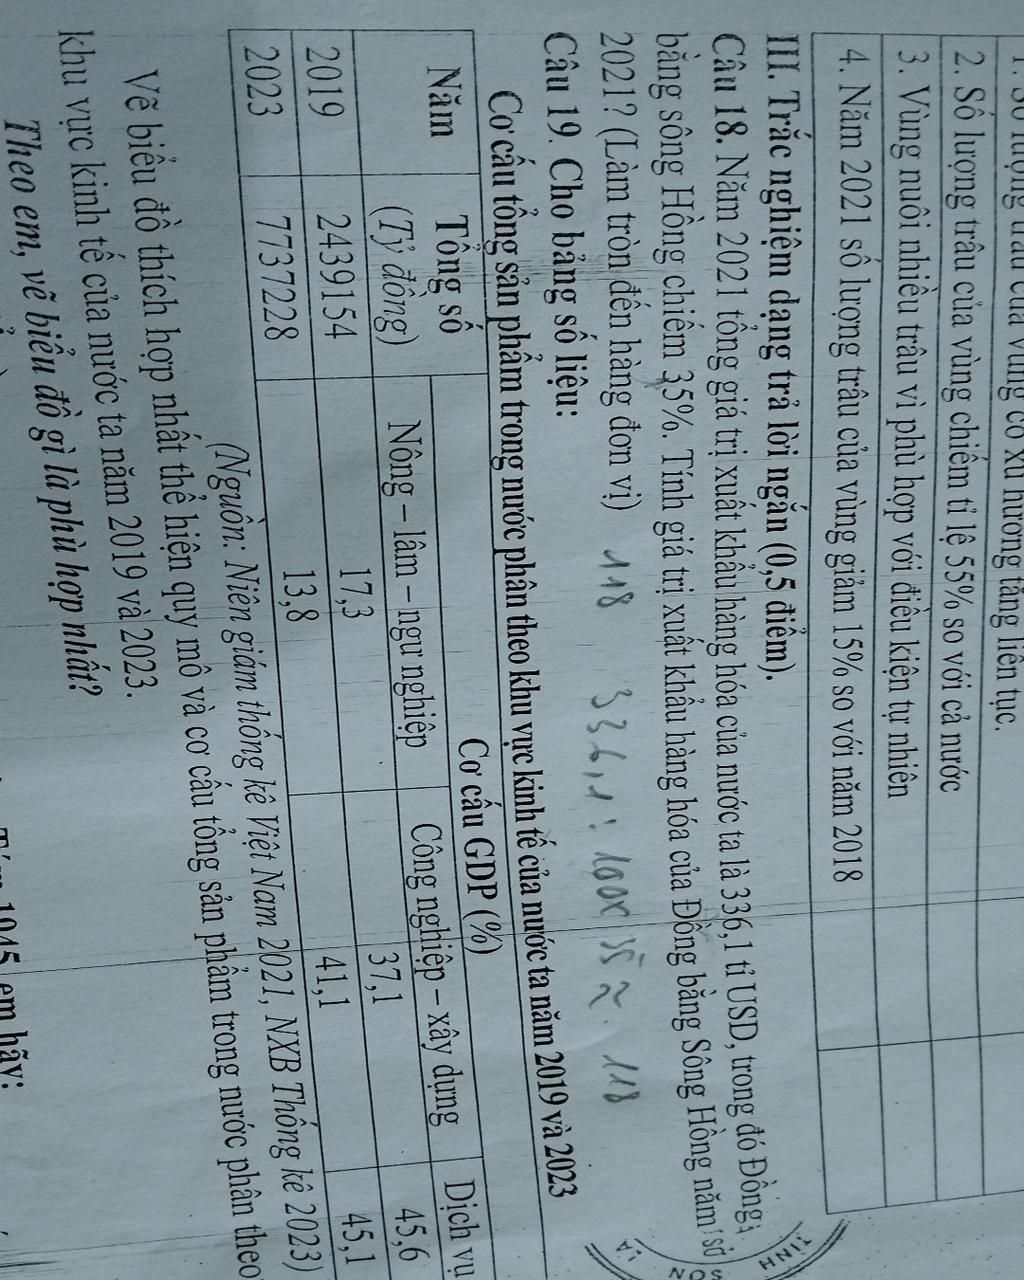 1. Số lượng trâu của vùng có xu hướng tăng liên tục.
2. Số lượng trâu của vùng chiếm tỉ lệ 55% so với cả nước
3. Vùng nuôi nhiều trâu vì phù hợp với điều kiện tự nhiên
4. Năm 2021 số lượng trâu của vùng giảm 15% so với năm 2018
III. Trắc nghiệm dạng trả lời ngắn (0,5 điểm).
Câu 18. Năm 2021 tổng giá trị xuất khẩu hàng hóa của nước ta là 336,1 tỉ USD, trong đó Đồng
bằng sông Hồng chiếm 35%. Tính giá trị xuất khẩu hàng hóa của Đồng bằng Sông Hồng năm
2021? (Làm tròn đến hàng đơn vị) 118 336,1 : 100 x 35 ≈ 118
Câu 19. Cho bảng số liệu:
Cơ cấu tổng sản phẩm trong nước phân theo khu vực kinh tế của nước ta năm 2019 và 2023
Năm Tổng số (Tỷ đồng) Cơ cấu GDP (%)
Nông – lâm – ngư nghiệp Công nghiệp – xây dựng Dịch vụ
2019 2439154 17,3 37,1 45,6
2023 7737228 13,8 41,1 45,1
(Nguồn: Niên giám thống kê Việt Nam 2021, NXB Thống kê 2023)
Vẽ biểu đồ thích hợp nhất thể hiện quy mô và cơ cấu tổng sản phẩm trong nước phân theo
khu vực kinh tế của nước ta năm 2019 và 2023.
Theo em, vẽ biểu đồ gì là phù hợp nhất?
1945 em hãy:
TỈNH
SƠN LA